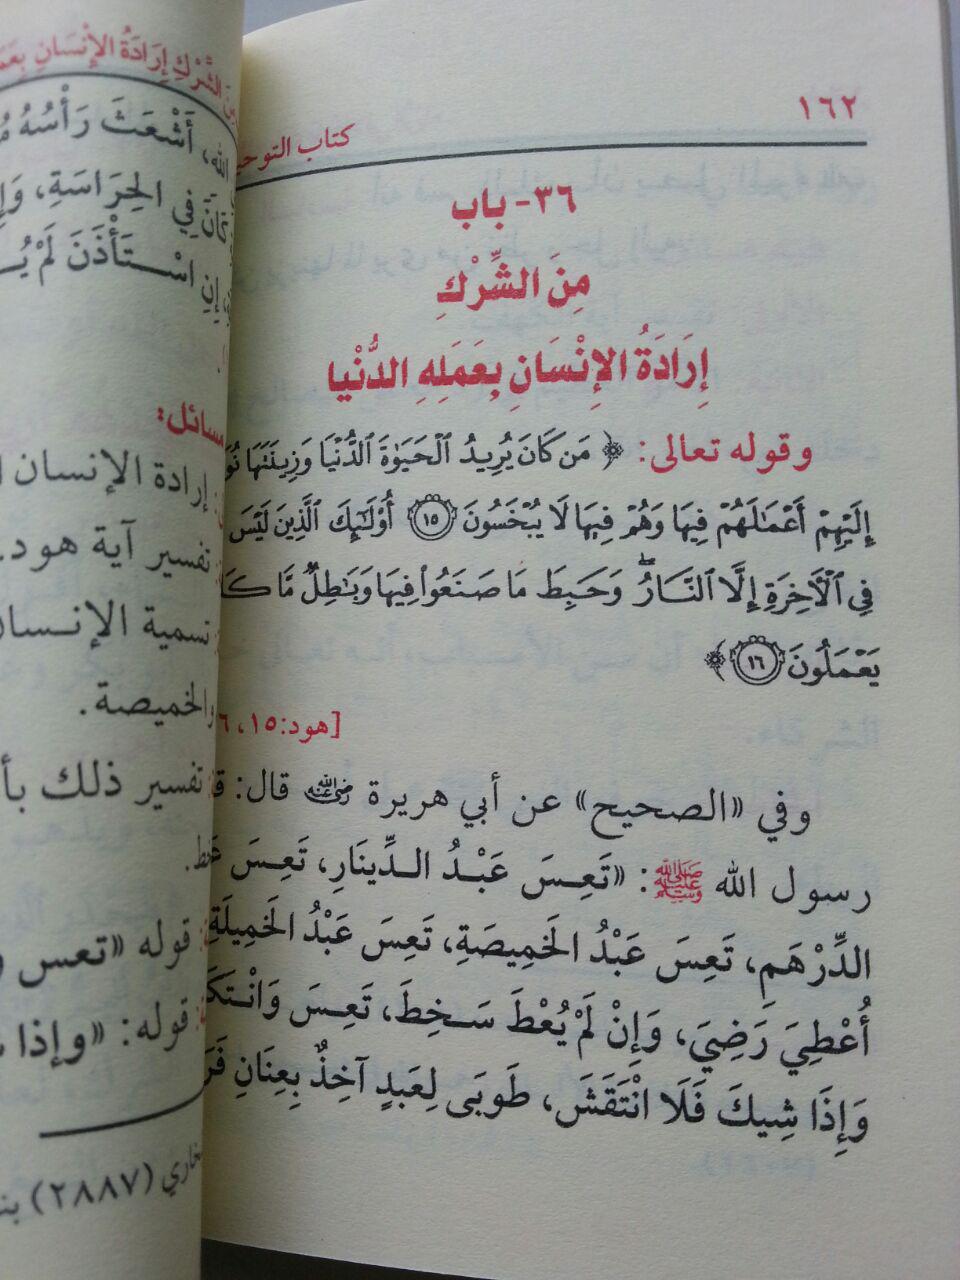 ١٦٢
كتاب التوحيد
٣٦- باب
مِنَ الشِّرْكِ
إِرَادَةُ الإِنْسَانِ بِعَمَلِهِ الدُّنْيا
وقوله تعالى: ﴿ مَن كَانَ يُرِيدُ ٱلْحَيَوٰةَ ٱلدُّنْيَا وَزِينَتَهَا
إِلَيْهِمْ أَعْمَٰلَهُمْ فِيهَا وَهُمْ فِيهَا لَا يُبْخَسُونَ ١٥ أُوْلَٰٓئِكَ ٱلَّذِينَ لَيْسَ
فِي ٱلْأٓخِرَةِ إِلَّا ٱلنَّارُ ۖ وَحَبِطَ مَا صَنَعُوا۟ فِيهَا وَبَٰطِلٌ مَّا
يَعْمَلُونَ ١٦ ﴾
[هود: ١٥،
وفي «الصحيح» عن أبي هريرة رضي الله عنه قال:
رسول الله ﷺ: «تَعِسَ عَبْدُ الدِّينَارِ، تَعِسَ
الدِّرْهَمِ، تَعِسَ عَبْدُ الخَمِيصَةِ، تَعِسَ عَبْدُ الخَمِيلَةِ
أُعْطِيَ رَضِيَ، وَإِنْ لَمْ يُعْطَ سَخِطَ، تَعِسَ
وَإِذَا شِيكَ فَلَا انْتَقَشَ، طَوبَى لِعَبدٍ آخِذٌ بِعِنَانِ
الشِّرْكِ إِرَادَةُ الإِنْسَانِ
الله، أَشْعَثَ رَأْسُهُ
كَانَ فِي الحِرَاسَةِ،
إِنِ اسْتَأْذَنَ لَمْ
مسائل:
إرادة الإنسان
تفسير آية هود.
تسمية الإنسان
والخميصة.
تفسير ذلك
قوله «تعس
قوله: «وإذا
(٢٨٨٧)